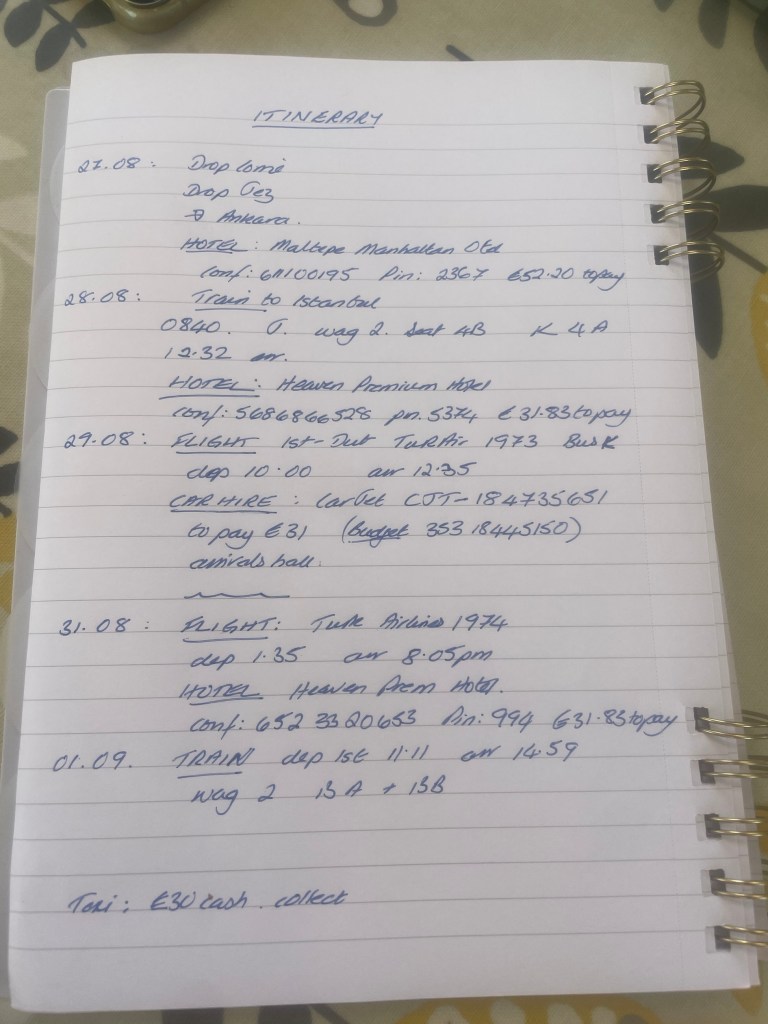 ITINERARY
27.08: Drop Lomé
Drop Tez
→ Ankara.
HOTEL: Maltepe Manhattan Otel
Conf: 611100195 Pin: 2367 €52.20 to pay
28.08: Train to Istanbul
0840. J. wag 2. Seat 4B K 4A
12.32 arr.
HOTEL: Heaven Premium Hotel
Conf: 5686866528 pn. 5374 €31.83 to pay
29.08: FLIGHT Ist-Dub TurAir 1973
dep 10.00 arr 12.35
CAR HIRE: CarJet CJT-184735651
to pay €31 (Budget 353 18445150)
arrivals hall.
31.08: FLIGHT: Turk Airlines 1974
dep 1.35 arr 8.05pm
HOTEL Heaven Prem Hotel.
conf: 652 33 20653 Pin: 994 €31.83 to pay
01.09. TRAIN dep Ist 11.11 arr 14.59
wag 2 13A + 13B
Taxi: €30 cash. collect